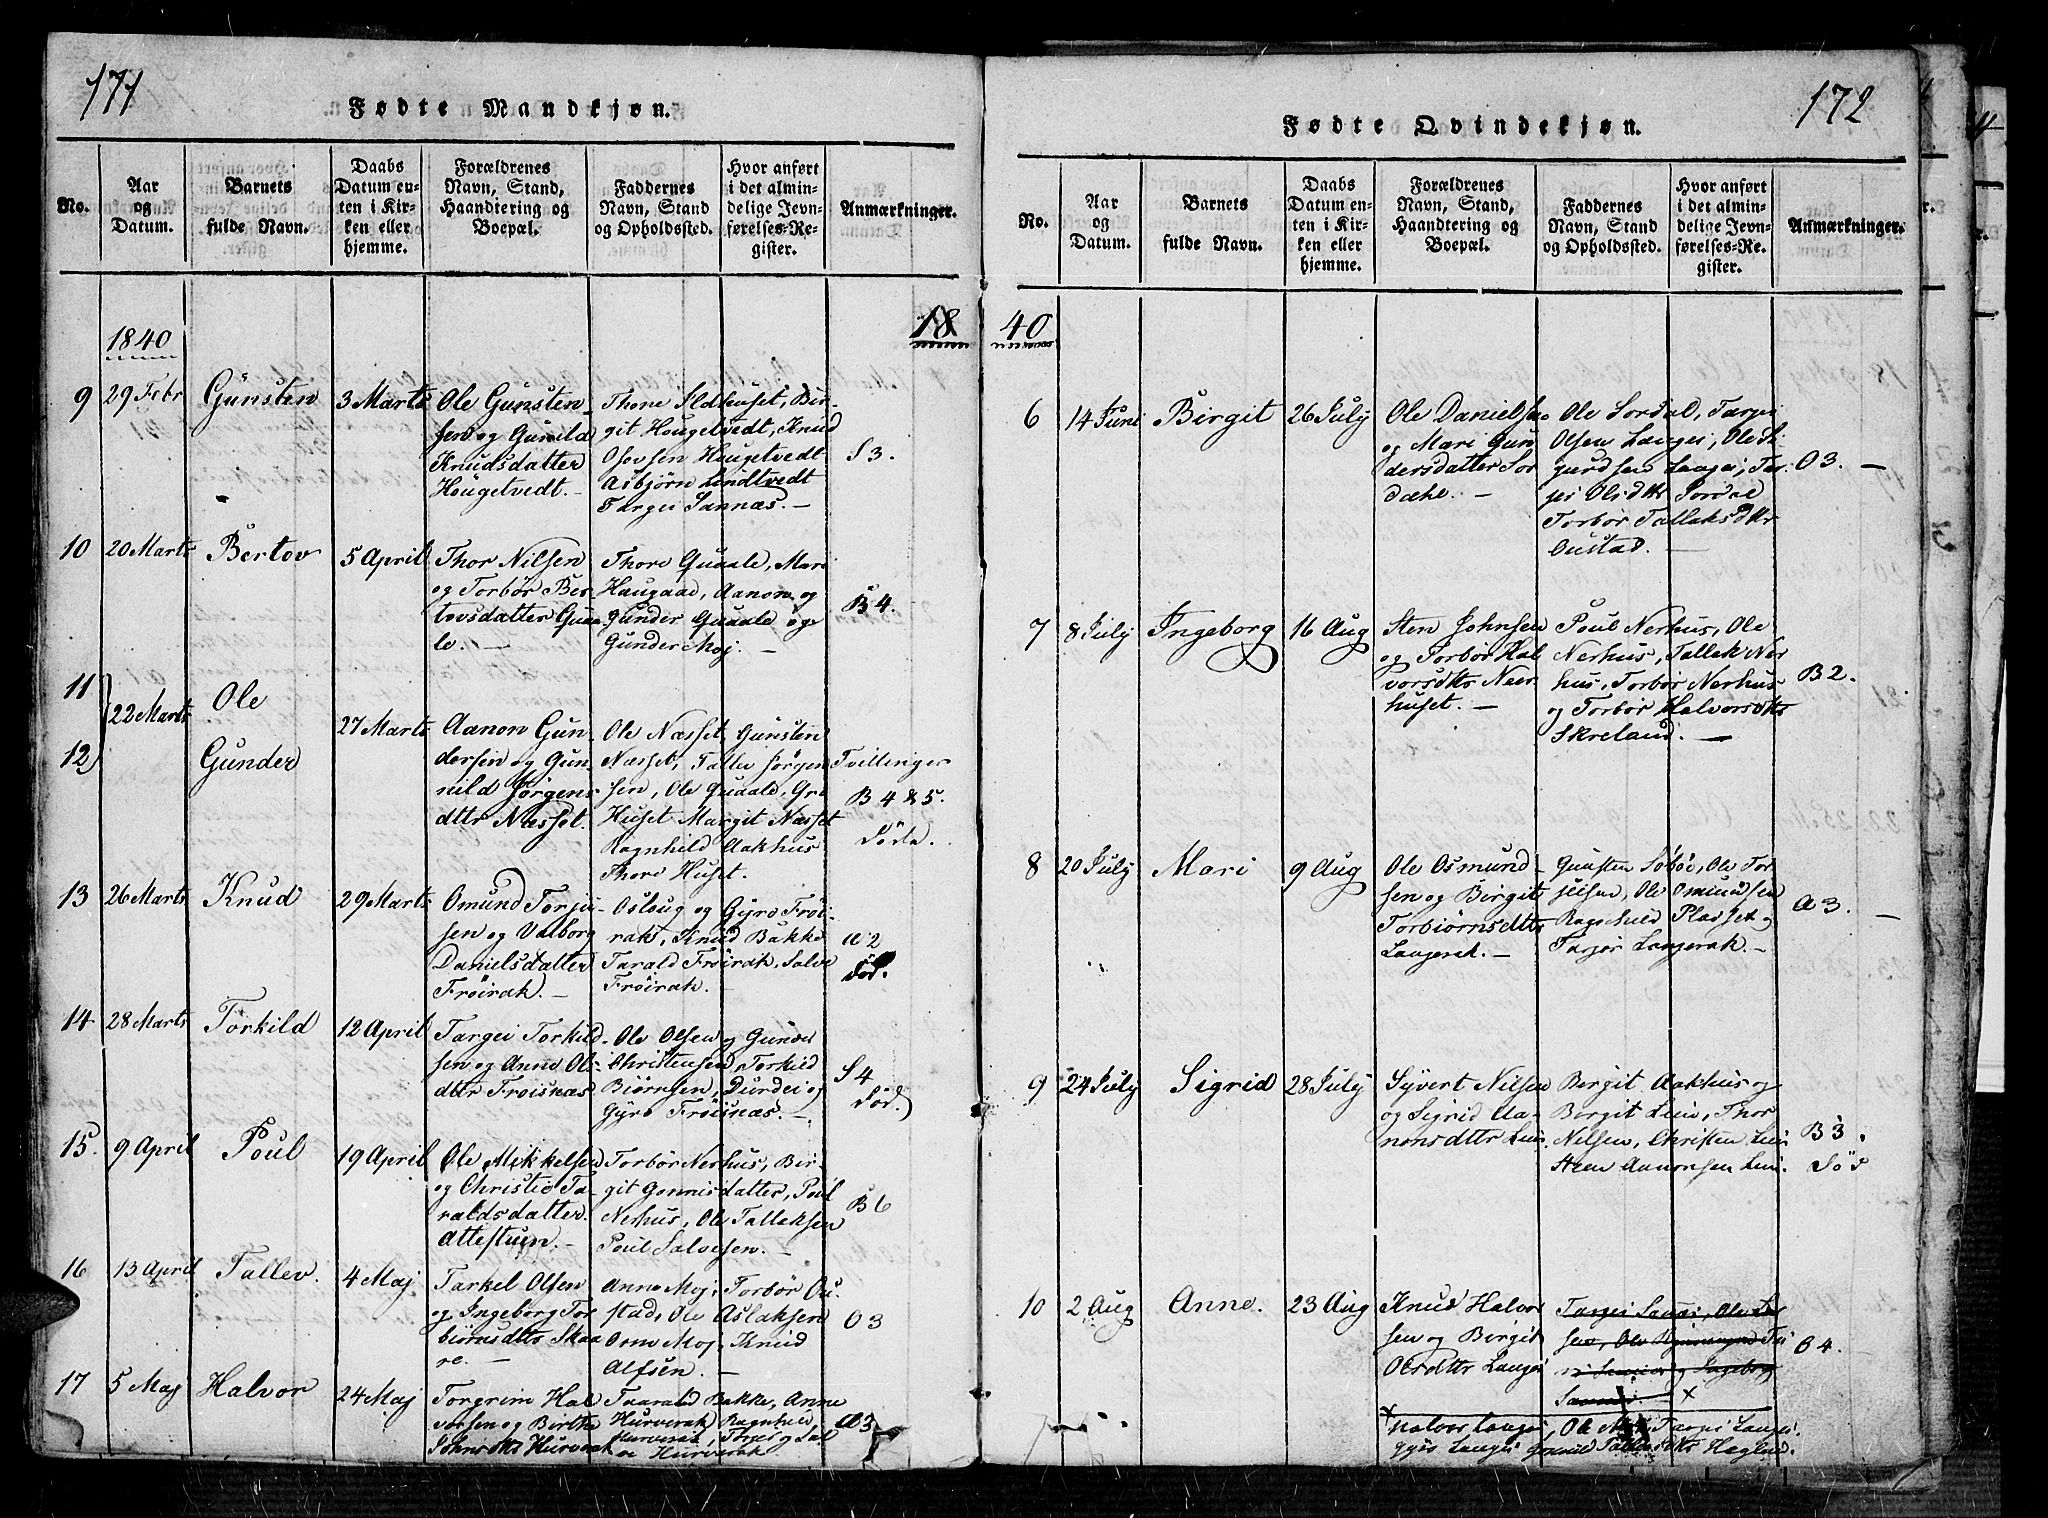 171
Fødte Mandkjøn.
No.
Aar
og
Datum.
Barnets
fulde Navn.
Daabs
Datum en-
ten i Kir-
ken eller
hjemme.
Forældrenes
Navn, Stand,
Haandtering og
Boepæl.
Faddernes
Navn, Stand
og Opholdssted.
Hvor anført
i det almin-
delige Jevn-
førelses-Re-
gister.
Anmærkninger.
1840
18
9
29 Febr
Gunsten
3 Marts
Ole Gunsten-
sen og Gunild
Knudsdatter
Hougetvedt.
Thone Ildhuset, Bir-
git Hougetvedt, Knud
Osovsen Hougetvedt
Asbjørn Lindtvedt
Targei Sannæs.
S 3.
10
20 Marts
Bertov
5 April
Thor Nilsen
og Torbør Ber-
tovsdatter Quaa-
le.
Thore Quaale, Mari
Haugaad, Aanon og
Gunder Quaale og
Gunder Moj.
B 4.
11
12
22 Marts
Ole
Gunder
27 Marts
Aanon Gun-
dersen og Gun-
nild Jørgens-
dttr Næsset.
Ole Næsset Gunsten
Næsset, Tallev Jørgen
sen, Ole Quaale, Gro
Huset Margit Næsset
Ragnhild Aakhus
Thore Huset.
Tvillinger
B 4 & 5.
Døde.
13
26 Marts
Knud
29 Marts
Omund Torju-
sen og Valborg
Danielsdatter
Frøirak.
Osloug og Gyro Frøi-
rak, Knud Bakke
Tarald Frøirak, Salve
Frøirak.
A 2
Død.
14
28 Marts
Torkild
12 April
Targei Torkild-
sen og Anne Ols-
dttr Frøisnæs
Ole Olsen og Gunder
Christensen, Torkild
Biørnsen, Durdei og
Gyro Frøisnæs.
S 4
Død.
15.
9 April
Poul
19 April
Ole Mikkelsen
og Christie Ta-
raldsdatter
Attestuen.
Torbør Nerhus, Bir-
git Gonnisdatter, Poul
Nerhus, Ole Tallaksen
Poul Salvesen.
B 6
16
13 April
Tallev.
4 Maj
Tarkel Olsen
og Ingeborg Tor-
biørnsdttr Skaa
re.
Anne Moj, Torbør Ou-
stad, Ole Aslaksen
Orm Moj, Knud
Alfsen.
O 3
17
5 Maj
Halvor
24 Maj
Torgrim Hal
vorsen og Birthe
Johnsdttr Hurverak
Taarald Bakke, Anne
Hurverak, Ragnhild
Hurverak, Targei og Sal
ve Hurverak
A 3
172
Fødte Qvindekjøn.
No.
Aar
og
Datum.
Barnets
fulde Navn.
Daabs
Datum en-
ten i Kir-
ken eller
hjemme.
Forældrenes
Navn, Stand,
Haandtering og
Boepæl.
Faddernes
Navn, Stand
og Opholdssted.
Hvor anført
i det almin-
delige Jevn-
førelses-Re-
gister.
Anmærkninger.
40
6
14 Juni
Birgit
26 July
Ole Danielsen
og Mari Gun
dersdatter Sor
dahl.
Ole Sordal, Targei
Olsen Langei, Ole Si-
gurdsen Langei, Tar-
jei Olsdttr Sordal
Torbør Tallaksdttr
Oustad.
O 3.
7
8 July
Ingeborg
16 Aug
Sten Johnsen
og Torbør Hal
vorsdttr Neer
huset.
Poul Nerhus, Ole
Nerhus, Tallak Ner
hus, Torbør Nerhus
og Torbør Halvorsdttr
Skreland.
B 2.
8
20 July
Mari
9 Aug
Ole Osmund-
sen og Birgit
Torbiørnsdttr
Langerak.
Gunsten Søbøe, Ole Tor-
jeisen, Ole Omundsen
Ragnhild Pladset og
Tarjer Langerak.
A 3.
9
24 July
Sigrid
28 July
Syvert Nilsen
og Sigrid Aa-
nonsdttr Lien.
Bergit Aakhus og
Birgit Lien, Thor
Nilsen, Christen Lien
Sten Aanonsen Lien.
B 3.
Død
10
2 Aug
Anne.
23 Aug
Knud Halvor
sen og Birgit
Olsdttr Langei
og Ingeborg
O 4.
Halvor Langei, Ole Targei Langei.
Gyro Langei Gunild Tallaksdttr Haglund.